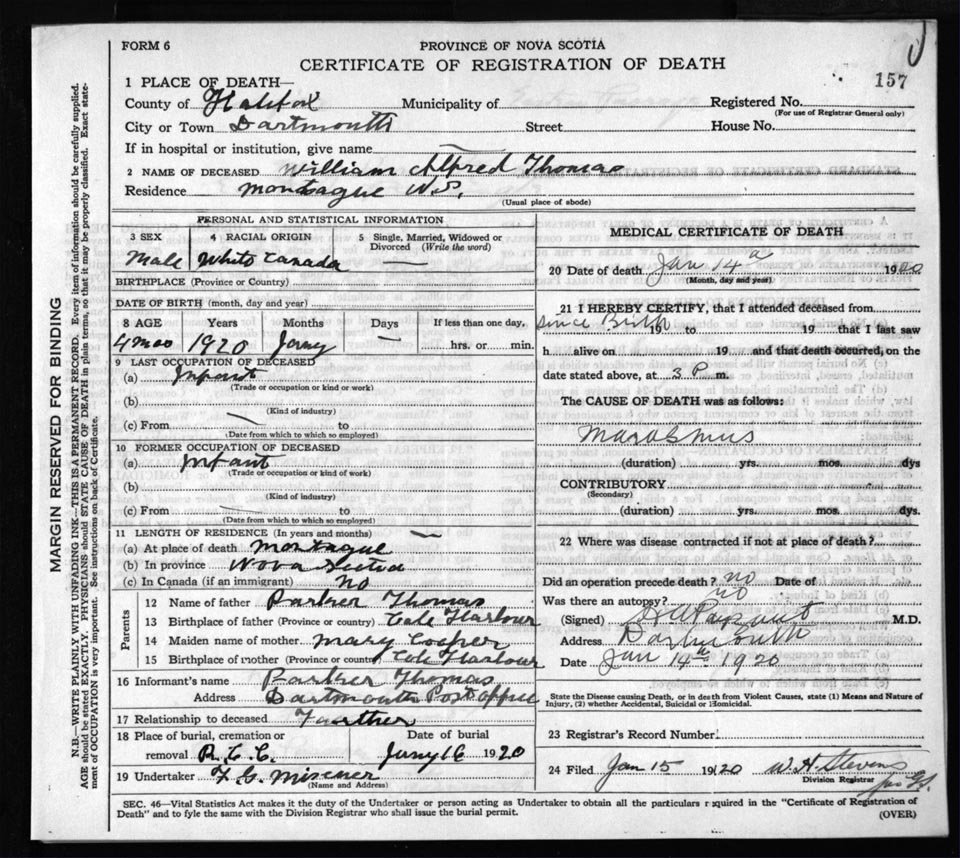 FORM 6
PROVINCE OF NOVA SCOTIA
CERTIFICATE OF REGISTRATION OF DEATH
157
1 PLACE OF DEATH—
County of Halifax Municipality of Registered No.
(For use of Registrar General only)
City or Town Dartmouth Street House No.
If in hospital or institution, give name
2 NAME OF DECEASED William Alfred Thomas
Residence Montague N.S.
(Usual place of abode)
PERSONAL AND STATISTICAL INFORMATION
3 SEX 4 RACIAL ORIGIN 5 Single, Married, Widowed or Divorced (Write the word)
Male White Canada —
BIRTHPLACE (Province or Country)
DATE OF BIRTH (month, day and year)
8 AGE Years Months Days If less than one day,
4 mos 1920 Jany — hrs. or min.
9 LAST OCCUPATION OF DECEASED
(a) Infant
(Trade or occupation or kind or work)
(b)
(Kind of industry)
(c) From to
(Date from which to which so employed)
10 FORMER OCCUPATION OF DECEASED
(a) Infant
(Trade or occupation or kind of work)
(b)
(Kind of industry)
(c) From to
(Date from which to which so employed)
11 LENGTH OF RESIDENCE (In years and months) —
(a) At place of death Montague
(b) In province Nova Scotia
(c) In Canada (if an immigrant) No
Parents
12 Name of father Parker Thomas
13 Birthplace of father (Province or country) Cole Harbour
14 Maiden name of mother Mary
15 Birthplace of mother (Province or country) Cole Harbour
16 Informant's name Parker Thomas
Address Dartmouth Post office
17 Relationship to deceased Farther
18 Place of burial, cremation or removal R.C.C. Date of burial Jany 16 1920
19 Undertaker Misener
(Name and Address)
MEDICAL CERTIFICATE OF DEATH
20 Date of death Jan 14th 1920
(Month, day and year)
21 I HEREBY CERTIFY, that I attended deceased from
Since Birth 19 to 19 that I last saw
h alive on 19 and that death occurred, on the
date stated above, at 3 P. m.
The CAUSE OF DEATH was as follows:
Marasmus
(duration) yrs. mos. dys
CONTRIBUTORY
(Secondary)
(duration) yrs. mos. dys.
22 Where was disease contracted if not at place of death?
Did an operation precede death? no Date of
Was there an autopsy? no
(Signed) M.D.
Address Dartmouth
Date Jan 14th 1920
State the Disease causing Death, or in death from Violent Causes, state (1) Means and Nature of
Injury, (2) whether Accidental, Suicidal or Homicidal.
23 Registrar's Record Number
24 Filed Jan 15 1920 W. H. Stevens
Division Registrar
SEC. 46—Vital Statistics Act makes it the duty of the Undertaker or person acting as Undertaker to obtain all the particulars required in the "Certificate of Registration of
Death" and to fyle the same with the Division Registrar who shall issue the burial permit.
(OVER)
MARGIN RESERVED FOR BINDING
N.B.—WRITE PLAINLY WITH UNFADING INK—THIS IS A PERMANENT RECORD. Every item of information should be carefully supplied.
AGE should be stated EXACTLY. PHYSICIANS should STATE CAUSE OF DEATH in plain terms, so that it may be properly classified. Exact state-
ment of OCCUPATION is very important. See instructions on back of Certificate.